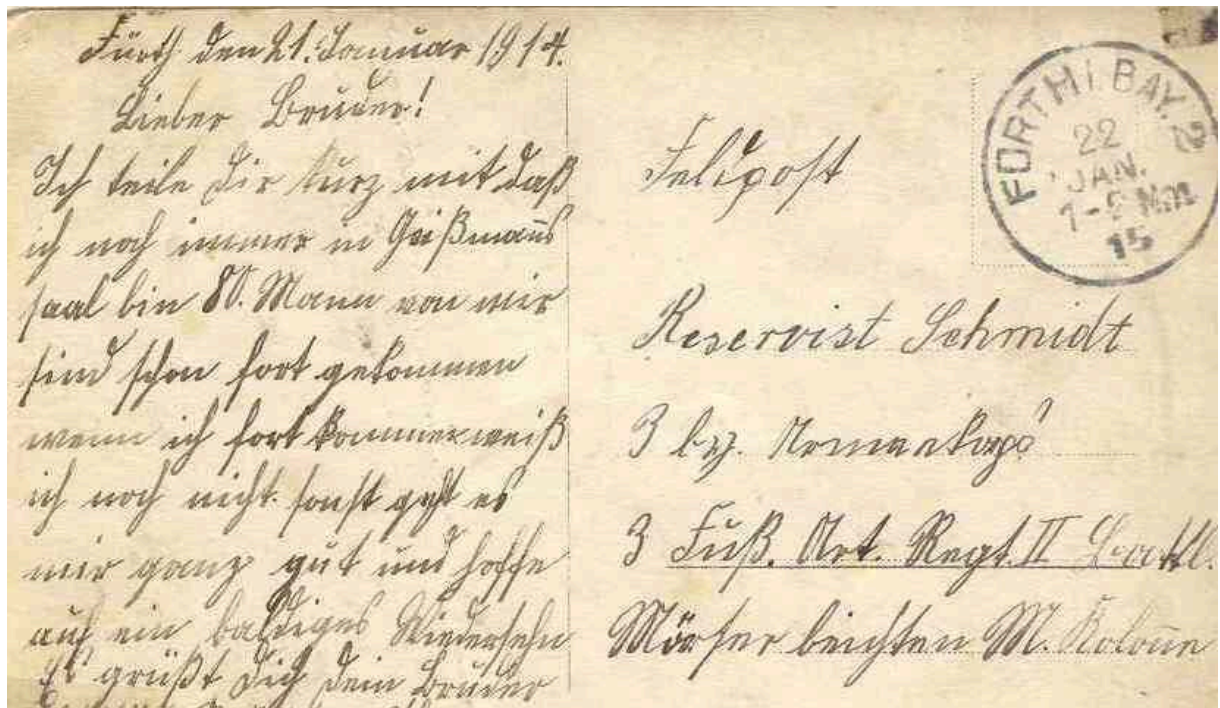 Fürth den 21. Januar 1914.
Lieber Bruder!
Ich teile dir kurz mit daß
ich noch immer in Geißmanns
saal bin 80. Mann von wir
sind schon fort gekommen
wenn ich fort komme weiß
ich noch nicht. sonst geht es
mir ganz gut und hoffe
auf ein baldiges Wiedersehn
Es grüßt Dich Dein Bruder
FÜRTH I. BAY. 2
22
JAN.
Nm.
15
Feldpost
Reservist Schmidt
3 Armeekorps
3 Fuß. Art. Regt. II Battl.
Mörser leichten M. Kolonne